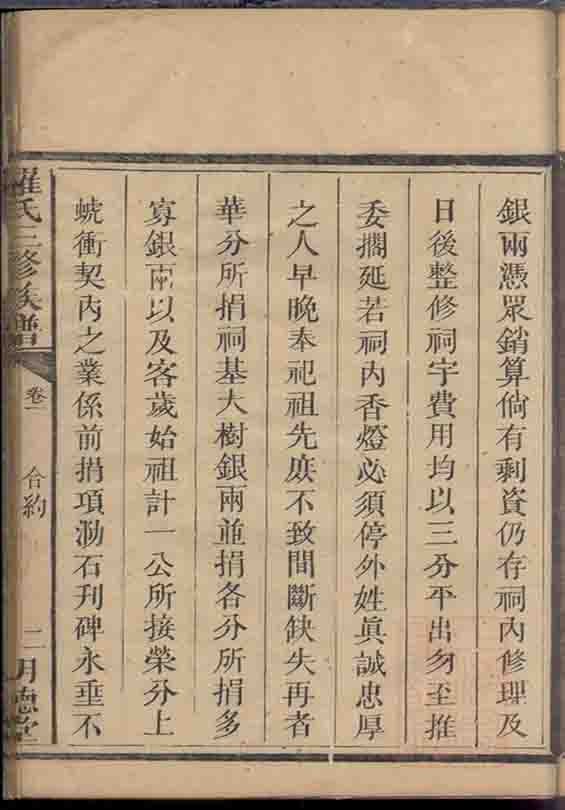 銀兩憑眾銷算倘有剩資仍存祠內修理及
日後整修祠宇費用均以三分平出勿至推
委擱延若祠內香燈必須停外姓眞誠忠厚
之人早晚奉祀祖先庶不致間斷缺失再者
華分所捐祠基大樹銀兩並捐各分所捐多
寡銀兩以及客歲始祖計一公所接榮分上
蜣衝契內之業係前捐項泐石刋碑永垂不
羅氏三修族譜
卷一
合約
二月德堂